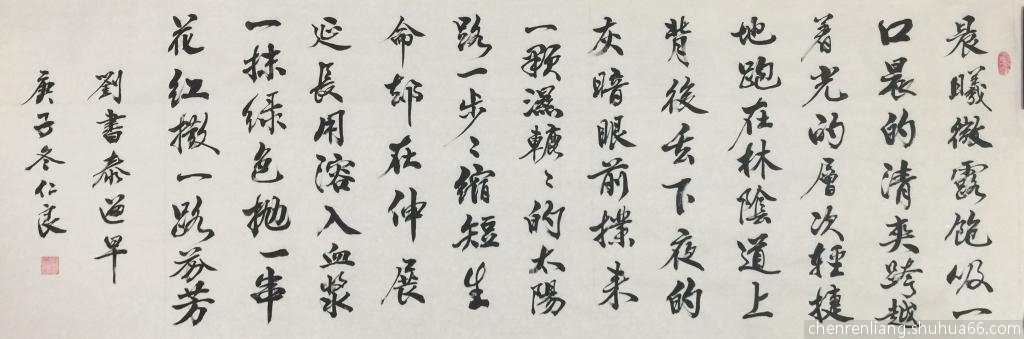 晨曦微露飽吸一
口晨的清爽跨越
着光的層次輕捷
地跑在林陰道上
背後丢下夜的
灰暗眼前撲来
一顆濕轆〻的太陽
路一步〻缩短生
命却在伸展
延長用溶入血漿
一抹绿色抛一串
花紅撒一路芬芳
劉書泰過早
庚子冬仁良
chenrenliang.shuhua66.com